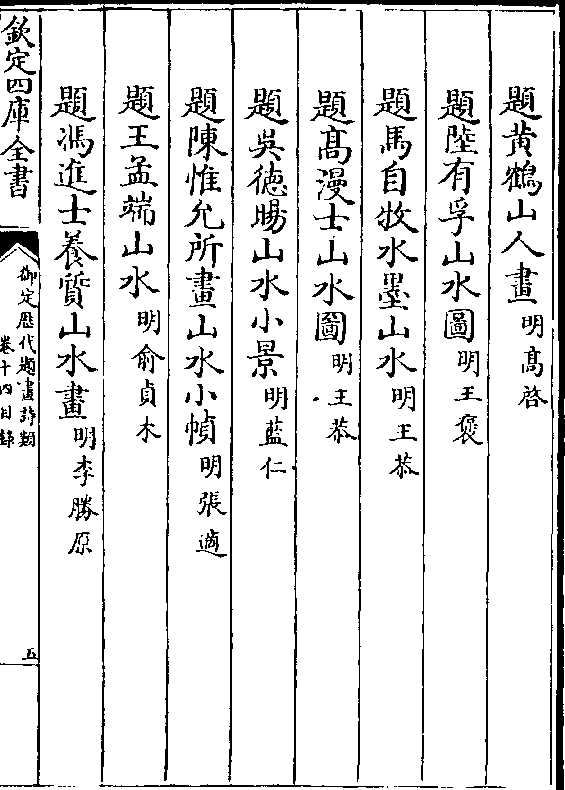 題黄鶴山人畫 明高啓
題陸有孚山水圖 明王褒
題馬自牧水墨山水 明王恭
題髙漫士山水圖 明王恭
題吳德暘山水小景 明藍仁
題陳惟允所畫山水小幀 明張適
題王孟端山水 明俞貞木
題馮進士養質山水畫 明李勝原
欽定四庫全書
御定歴代題畫詩類
卷十四目録
五